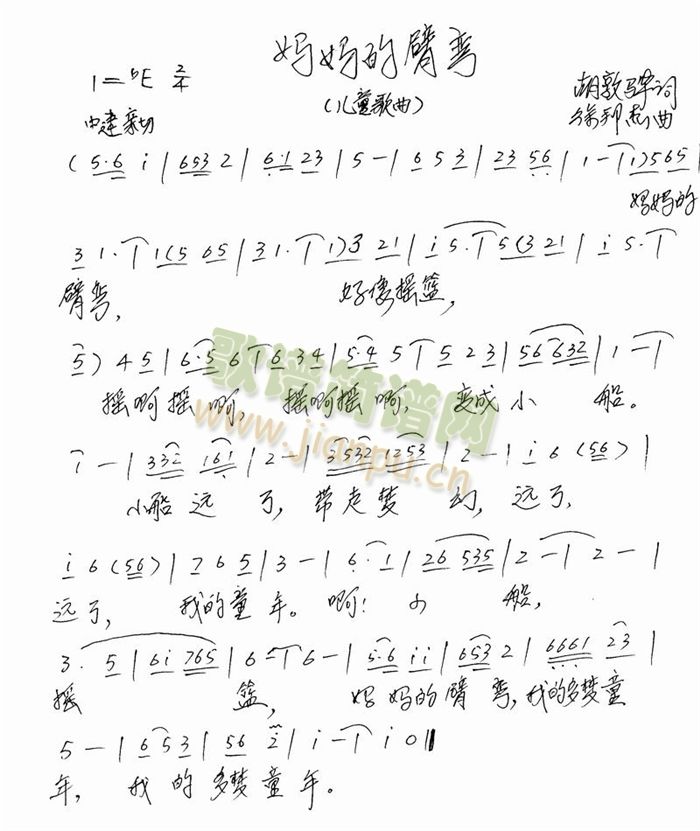 妈妈的臂弯
1=♭E 2/4
(儿童歌曲)
中速亲切
胡敦骅词
徐邦杰曲
(5·6 i | 653 2 | 6·1 23 | 5 - | 6 5 3 | 23 56 | 1 - | 1) 565 |
妈妈的
3 1· | 1(5 65 | 31· | 1)3 21 | i 5· | 5(3 21 | i 5· |
臂弯, 好像摇篮,
5) 4 5 | 6·5 6 | 6 34 | 5·4 5 | 5 2 3 | 56 632 | 1 - |
摇啊摇啊, 摇啊摇啊, 变成小 船。
1 - | 332 161 | 2 - | 3532 1253 | 2 - | i 6 (56) |
小船远了, 带走梦 幻, 远了,
i 6 (56) | 7 6 5 | 3 - | 6· 1 | 26 535 | 2 - | 2 - |
远了, 我的童年。啊! 小 船,
3· 5 | 6i 765 | 6 - | 6 - | 5·6 ii | 653 2 | 6661 23 |
摇 篮, 妈妈的臂弯,我的多梦童
5 - | 6 5 3 | 56 2 | i - | i 0 ‖
年, 我的多梦童年。
歌谱简谱网
www.jianpu.cn